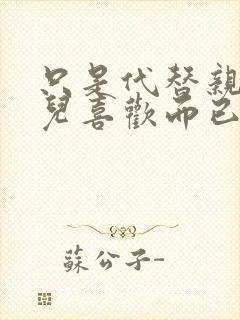 只是代替親
兒喜歡而已
蘇公子-